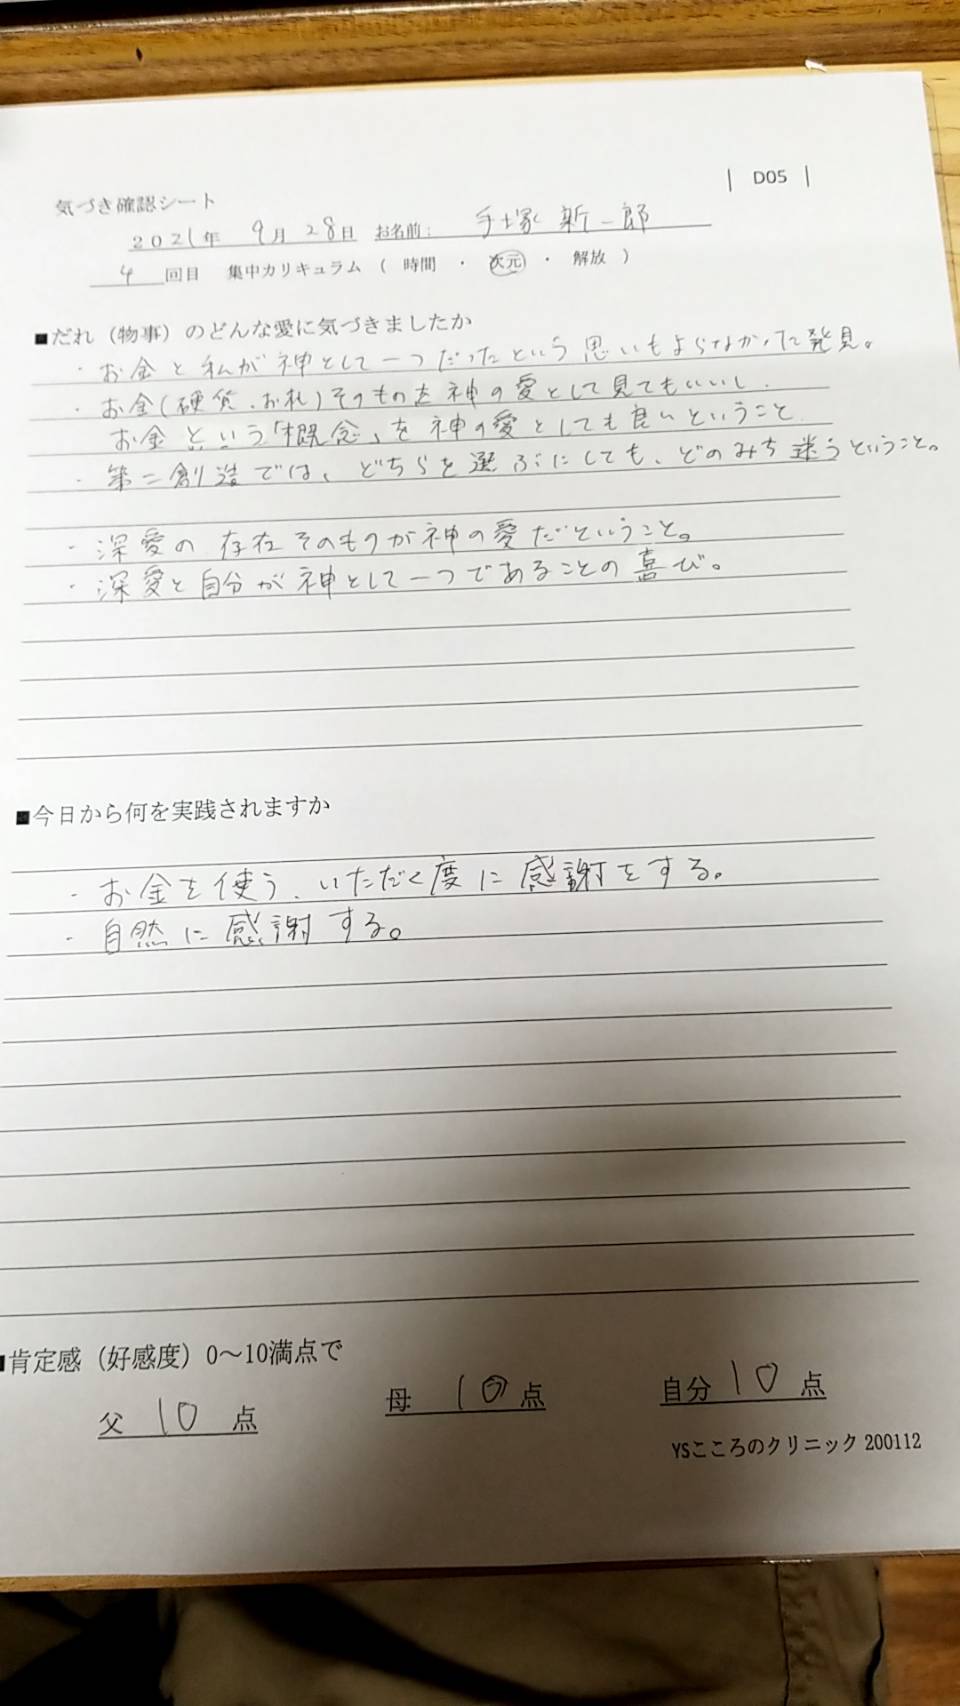 | D05 |
気づき確認シート
2021年 9月 28日 お名前: 手塚 新一郎
4回目 集中カリキュラム ( 時間 ・ 次元 ・ 解放 )
■だれ（物事）のどんな愛に気づきましたか
・お金と私が神として一つだったという思いもよらなかった発見。
・お金(硬貨、お札)そのものを神の愛として見てもいいし、
お金という「概念」を神の愛としても良いということ
・第二創造では、どちらを選ぶにしても、どのみち迷うということ。
・深愛の存在そのものが神の愛だということ。
・深愛と自分が神として一つであることの喜び。
■今日から何を実践されますか
・お金を使う、いただく度に感謝をする。
・自然に感謝する。
■肯定感（好感度）0～10満点で
父 10 点 母 10 点 自分 10 点
YSこころのクリニック 200112